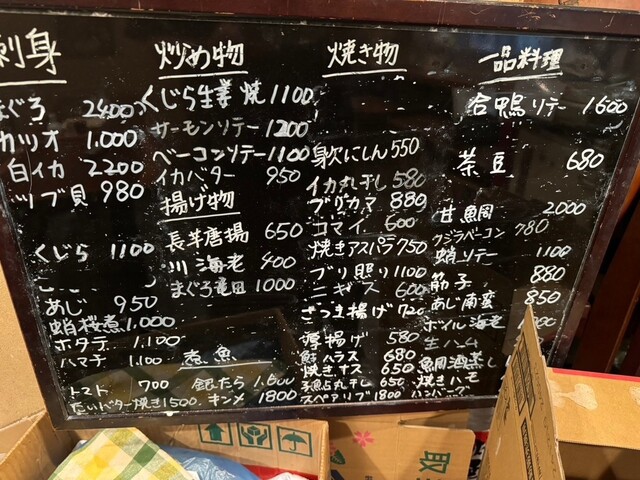 刺身
まぐろ 2400
カツオ 1.000
白イカ 2200
ツブ貝 980
くじら 1100
あじ 950
蛸桜煮 1,000
ホタテ 1.100
ハマチ 1.100
トマト 700
たいバター焼き 1500
炒め物
くじら生姜焼 1100
サーモンソテー 1200
ベーコンソテー 1100
イカバター 950
揚げ物
長芋唐揚 650
川海老 400
まぐろ竜田 1000
煮魚
銀だら 1.600
キンメ 1800
焼き物
身欠にしん 550
イカ丸干し 580
ブリカマ 880
コマイ 600
焼きアスパラ 750
ブリ照り 1100
ニギス 600
さつま揚げ 720
厚揚げ 580
鮭ハラス 680
焼きナス 650
丸干し 650
スペアリブ 1800
一品料理
合鴨ソテー 1.600
茶豆 680
甘鯛 2.000
クジラベーコン 780
蛸ソテー 1100
筋子 880
あじ南蛮 850
ボイル海老
生ハム
鯛酒蒸し
焼きハモ
ハンバーグ
取